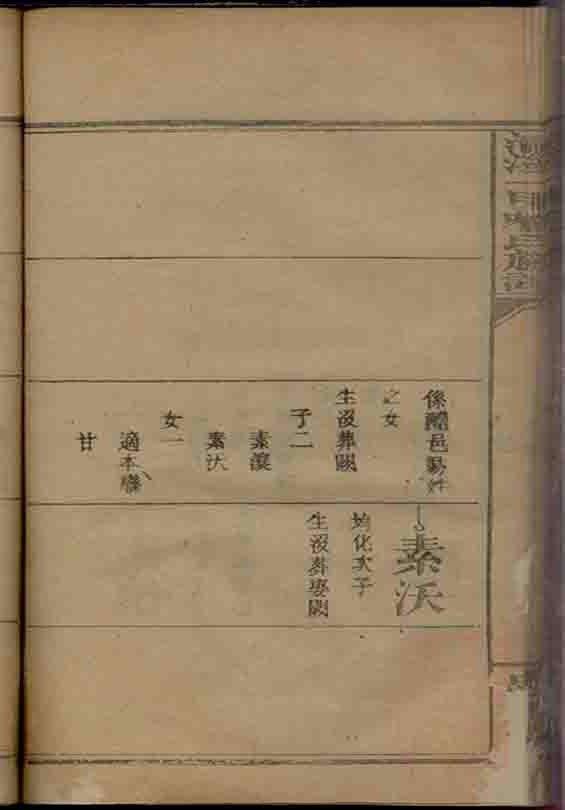 係醴邑易姓
之女
生沒葬闕
子二
素瀼
素沃
女一
適本縣
甘
素沃
均化次子
生沒葬娶闕